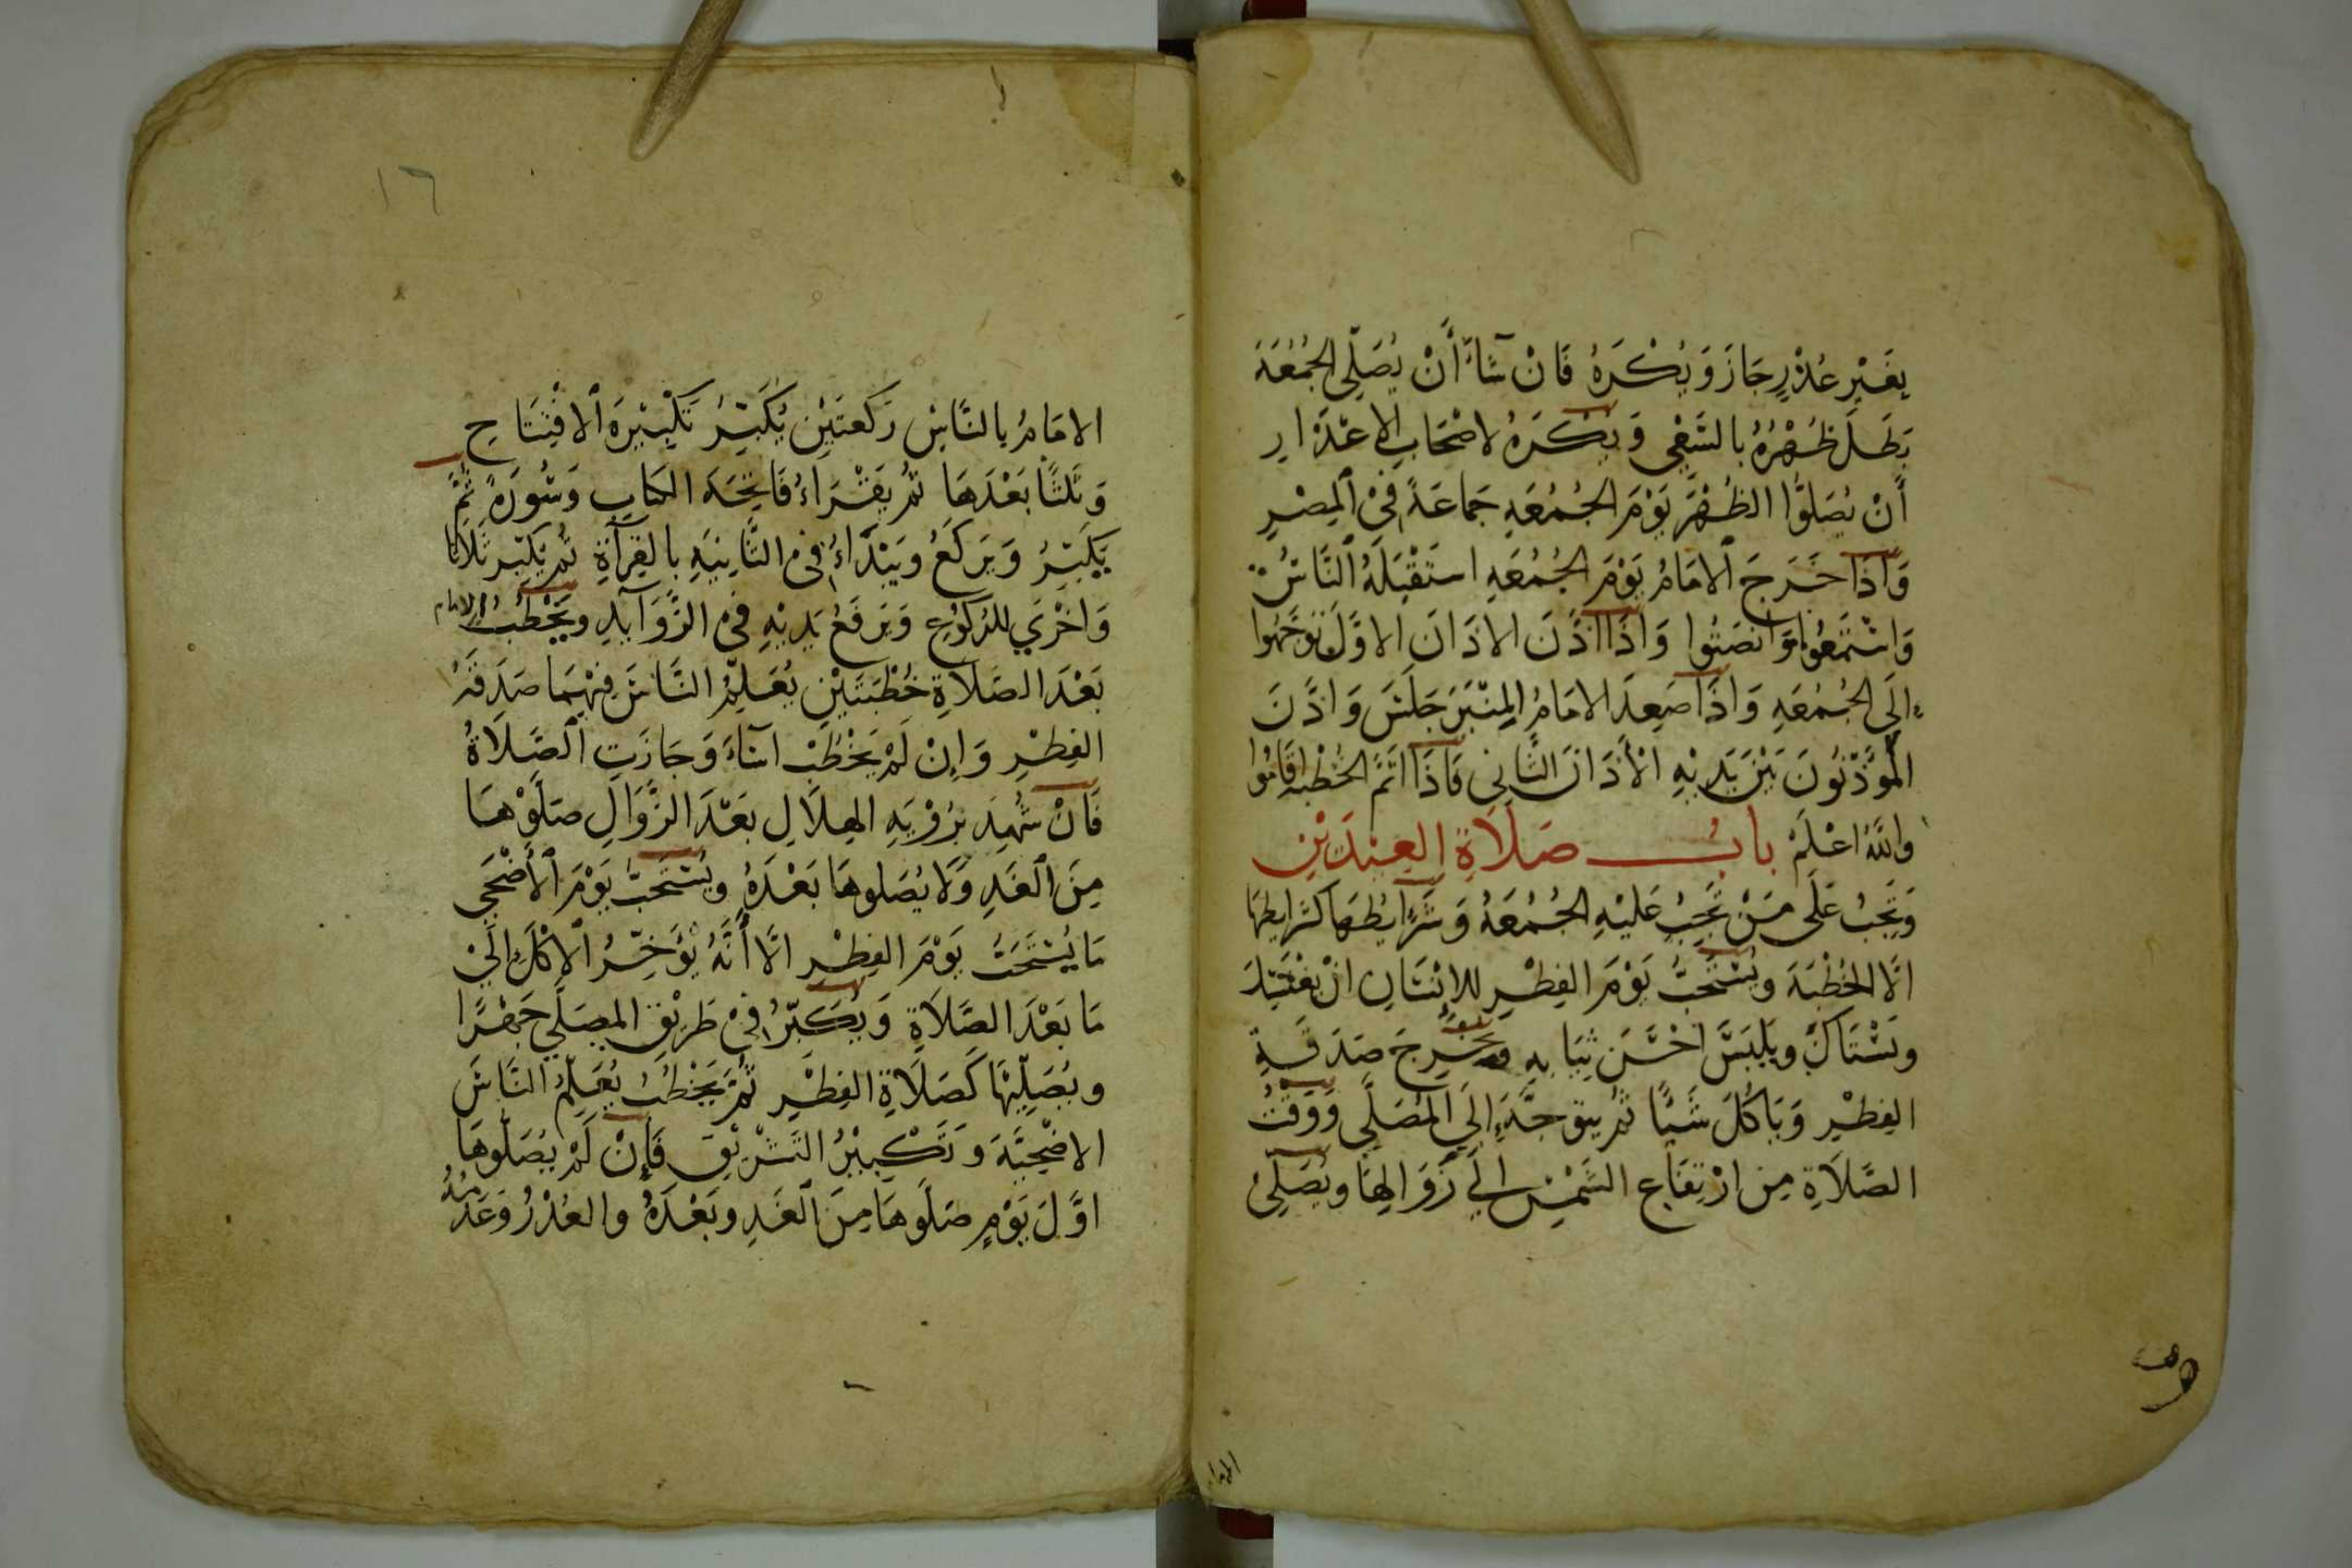 بِغَيْرِ عُذْرٍ جَازَ وَيُكْرَهُ فَانْ شَاءَ أَنْ يُصَلِّي الجُمُعَةَ
بَطَلَ ظُهْرُهُ بالسَّعْيِ وَيُكْرَهُ لاصْحَابِ الاعْذَارِ
أَنْ يُصَلُّوا الظُهْرَ يَوْمَ الجُمُعَةِ جَمَاعَةً فِي المِصْرِ
وَاذَا خَرَجَ الامَامُ يَوْمَ الجُمُعَةِ استَقْبَلَهُ النَّاسُ
وَاسْتَمَعُوا وَانصَتُوا وَاذَا اذَّنَ الاذَانَ الاوَّلَ تَوَجَّهُوا
الَى الجُمُعَةِ وَاذَا صَعِدَ الامَامُ المِنْبَرَ جَلَسَ وَاذَّنَ
المُؤَذِّنُونَ بَيْنَ يَدَيْهِ الْأَذَانَ الثَّانِي فَاذَا اتَمَّ الخُطْبَةَ اقَامُوا
وَاللَّهُ اعْلَمْ بابُ صَلَاةِ العِيْدَيْنِ
وَتَجِبُ عَلَى مَنْ تَجِبُ عَلَيْهِ الجُمُعَةُ وَشَرَايِطُهَا كَشَرَايِطِهَا
الَّا الخُطْبَةَ ويُسْتَحَبُّ يَوْمَ الفِطْرِ للاِنْسَانِ انْ يَغْتَسِلَ
وَيَسْتَاكَ ويَلْبَسَ احْسَنَ ثِيَابِهِ ويُخْرِجَ صَدَقَةِ
الفِطْرِ وَيَاكُلَ شَيْئًا ثُمَّ يتوجَّهَ إلَى المُصَلَّي وَوَقْتُ
الصَّلَاةِ مِن ارْتِفَاعِ الشَّمْسِ الي زَوَالِهَا ويُصَلِّي
١٦
الامَامُ بالنَّاسِ رَكعَتَيْنِ يُكَبِّرُ تَكْبِيْرَةَ الافْتِتَاحِ
وَثَلثًا بَعْدَهَا ثُمَّ يَقْرَاءُ فَاتِحَةَ الكتابِ وَسُورَةً ثُمَّ
يُكَبِّرُ وَيَركَعُ ويَبْدَاءُ فِي الثَّانِيَةِ بالقِرآةِ ثُمَّ يُكَبِّر ثَلَاثًا
وَاخْرَي للرُكُوعِ وَيَرفَعُ يَدَيْهِ فِي الزَّوَآيدِ ويَخْطُبُ الامام
بَعْدَ الصَّلَاةِ خُطْبَتَيْنِ يُعَلِّمُ النَّاسَ فِيْهِمَا صَدَقَةَ
الفِطْرِ وَإِنْ لَمْ يَخْطُبْ اسَآءَ وَجَازَتِ الصَّلَاةُ
فَانْ شُهِدَ بِرُؤْيَةِ الهِلَالِ بَعْدَ الزَّوَالِ صَلَّوْهَا
مِنَ الغَدِ وَلَا يُصَلوهَا بَعْدَهُ ويُسْتَحَبُّ يَوْمَ الأَضْحَي
مَا يُسْتَحَبُّ يَوْمَ الفِطْرِ الَّا أَنَّهُ يُؤَخِّرُ الاكْلَ إلَيْ
مَا بَعْدَ الصَّلَاةِ وَيُكَبِّرُ فِي طَرِيْقِ المصَلَّي جَهْرًا
ويُصَلِّيْهَا كَصَلَاةِ الفِطْرِ ثُمَّ يَخْطُبُ يُعَلِّمُ النَّاسَ
الاضْحِيَّةَ وَتَكْبِيْرَ التَشْرِيْقِ فَإِنْ لَمْ يُصَلُّوهَا
اوَّلَ يَوْمٍ صَلَّوهَا مِنَ الغَدِ وبَعْدَهُ والعُذْرُ وَعَدَمُهُ